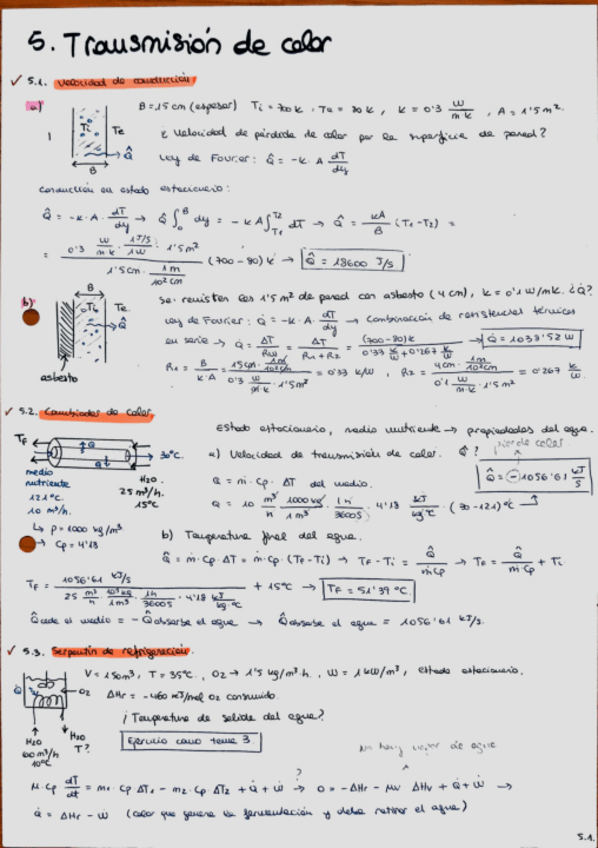 5. Transmisión de calor
✓ 5.1. Velocidad de conducción
a) B = 15 cm (espesor) Ti = 700 K, Te = 80 K, k = 0'3 W/m·k, A = 1'5 m².
Ti Te
¿Velocidad de pérdida de calor por la superficie de pared?
Q̂
Ley de Fourier: Q̂ = -k. A dT/dy
B
Conducción en estado estacionario:
Q̂ = -k · A · dT/dy → Q̂ ∫₀ᴮ dy = - k A ∫T1 T2 dT → Q̂ = kA/B (T1-T2) =
= 0'3 W/m·k · 1 J/s/1 W · 1'5 m² / 15 cm · 1 m/10² cm (700 - 80) k → Q̂ = 18600 J/s
B
b) Ti Te
Se revisten los 1'5 m² de pared con asbesto (4 cm), k = 0'1 W/mk. ¿Q̇?
Q̂
Ley de Fourier: Q̇ = -k · A · dT/dy → Combinación de resistencias térmicas
en serie → Q̇ = ΔT/RW = ΔT/R1 + R2 = (700-80)k / 0'33 k/W + 0'267 k/W → Q̇ = 1033'52 W
asbesto
R1 = B/k·A = 15 cm · 1m/10² cm / 0'3 W/m·k · 1'5 m² = 0'33 k/W, R2 = 4 cm · 1m/10² cm / 0'1 W/m·k · 1'5 m² = 0'267 k/W
✓ 5.2. Cambiador de calor.
Estado estacionario, medio nutriente → propiedades del agua.
TF Q Q 30°C.
pierde calor
a) Velocidad de transmisión de calor. Q̂?
medio nutriente 121°C. 10 m³/h.
H2O. 25 m³/h. 15°C
Q = ṁ · Cp · ΔT del medio.
Q̂ = -1056'61 kJ/s
Q = 10 m³/h · 1000 kg/1 m³ · 1 h/3600 s · 4'18 kJ/kg°C · (30 - 121) °C
↳ ρ = 1000 kg/m³
→ Cp = 4'18
b) Temperatura final del agua.
Q̂ = ṁ · Cp · ΔT = ṁ · Cp · (TF - Ti) → TF - Ti = Q̂/ṁCp → TF = Q̂/ṁ·Cp + Ti
TF = 1056'61 kJ/s / 25 m³/h · 10³ kg/1 m³ · 1h/3600 s · 4'18 kJ/kg·°C + 15°C → TF = 51'39 °C.
Q̂ cede el medio = - Q̂ absorbe el agua → Q̂ absorbe el agua = 1056'61 kJ/s.
✓ 5.3. Serpentín de refrigeración.
V = 150 m³, T = 35°C., O2 → 1'5 kg/m³·h., W = 1 kW/m³, estado estacionario.
Q O2
ΔHr = -460 kJ/mol O2 consumido.
¿Temperatura de salida del agua?
H2O 10°C
H2O T?
Ejercicio como tema 3.
No hay vapor de agua
M · Cp dT/dt = m1 · Cp ΔT1 - m2 · Cp ΔT2 + Q̇ + Ẇ → 0 = -ΔHr - Mv ΔHv + Q̇ + Ẇ →
?
Q̇ = ΔHr - Ẇ (calor que genera la fermentación y debe retirar el agua)
5.1.